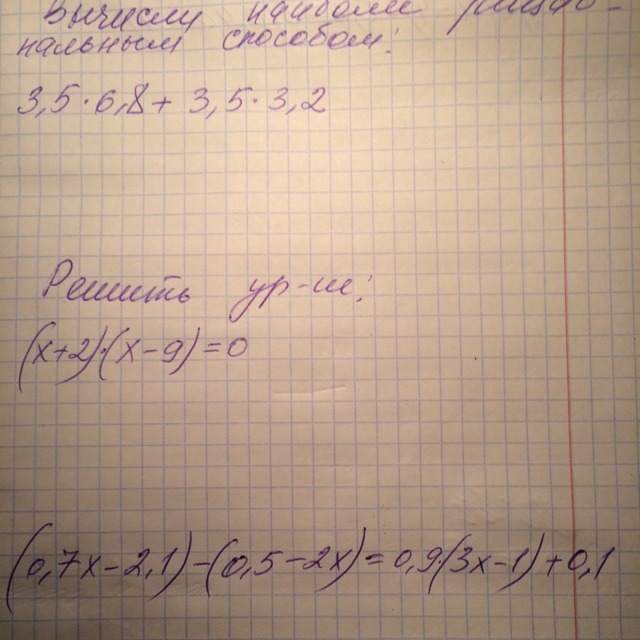 Вычисли наиболее рацио-
нальным способом:
3,5·6,8+3,5·3,2
Решить ур-ие:
(x+2)·(x-9)=0
(0,7x-2,1)-(0,5-2x)=0,9·(3x-1)+0,1